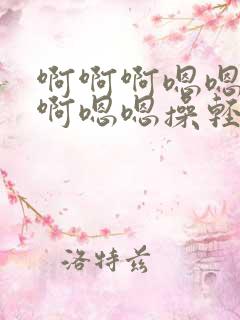 啊啊啊嗯嗯
啊嗯嗯操轻
洛特兹